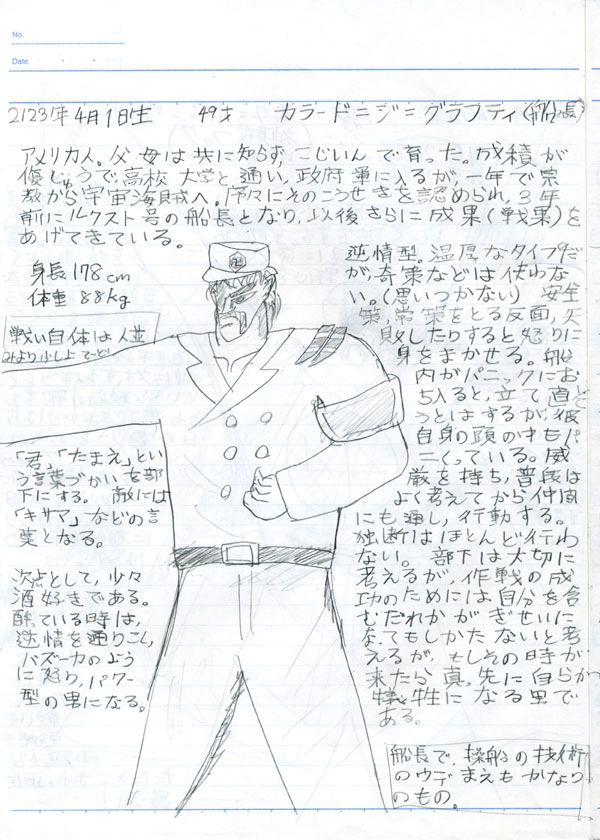 No.
Date
2123年4月1日生 49才 カラード=ジ=グラフティ(船長)
アメリカ人。父・母は共に知らず、こじいんで育った。成積が
優しゅうで、高校 大学と通い、政府軍に入るが、一年で宗
教から宇宙海賊へ。序々にそのこうせきを認められ、3年
前にルクスト号の船長となり、以後さらに成果(戦果)を
あげてきている。
身長178cm
体重 88kg
戦い自体は人並
みより少し上ていど
「君」「たまえ」とい
う言葉づかいを部
下にする。敵には
「キサマ」などの言
葉となる。
次点として、少々
酒好きである。
酔ている時は、
逆情を通りこし、
バズーカのよう
に怒り、パワー
型の男になる。
逆情型。温厚なタイプだ
が、奇策などは使わな
い。(思いつかない) 安全
策、常策をとる反面、失
敗したりすると怒りに
身をまかせる。船
内がパニックにお
ち入ると、立て直そ
うとはするが、彼
自身の頭の中もパ
ニくっている。威
厳を持ち、普段は
よく考えてから仲間
にも通し、行動する。
独断はほとんど行わ
ない。 部下は大切に
考えるが、作戦の成
功のためには自分を含
むだれかがぎせいに
なってもしかたないと考
えるが、もしその時が
来たら真っ先に自らが
犠牲になる男で
ある。
船長で、操船の技術
のウデまえもかなり
のもの。